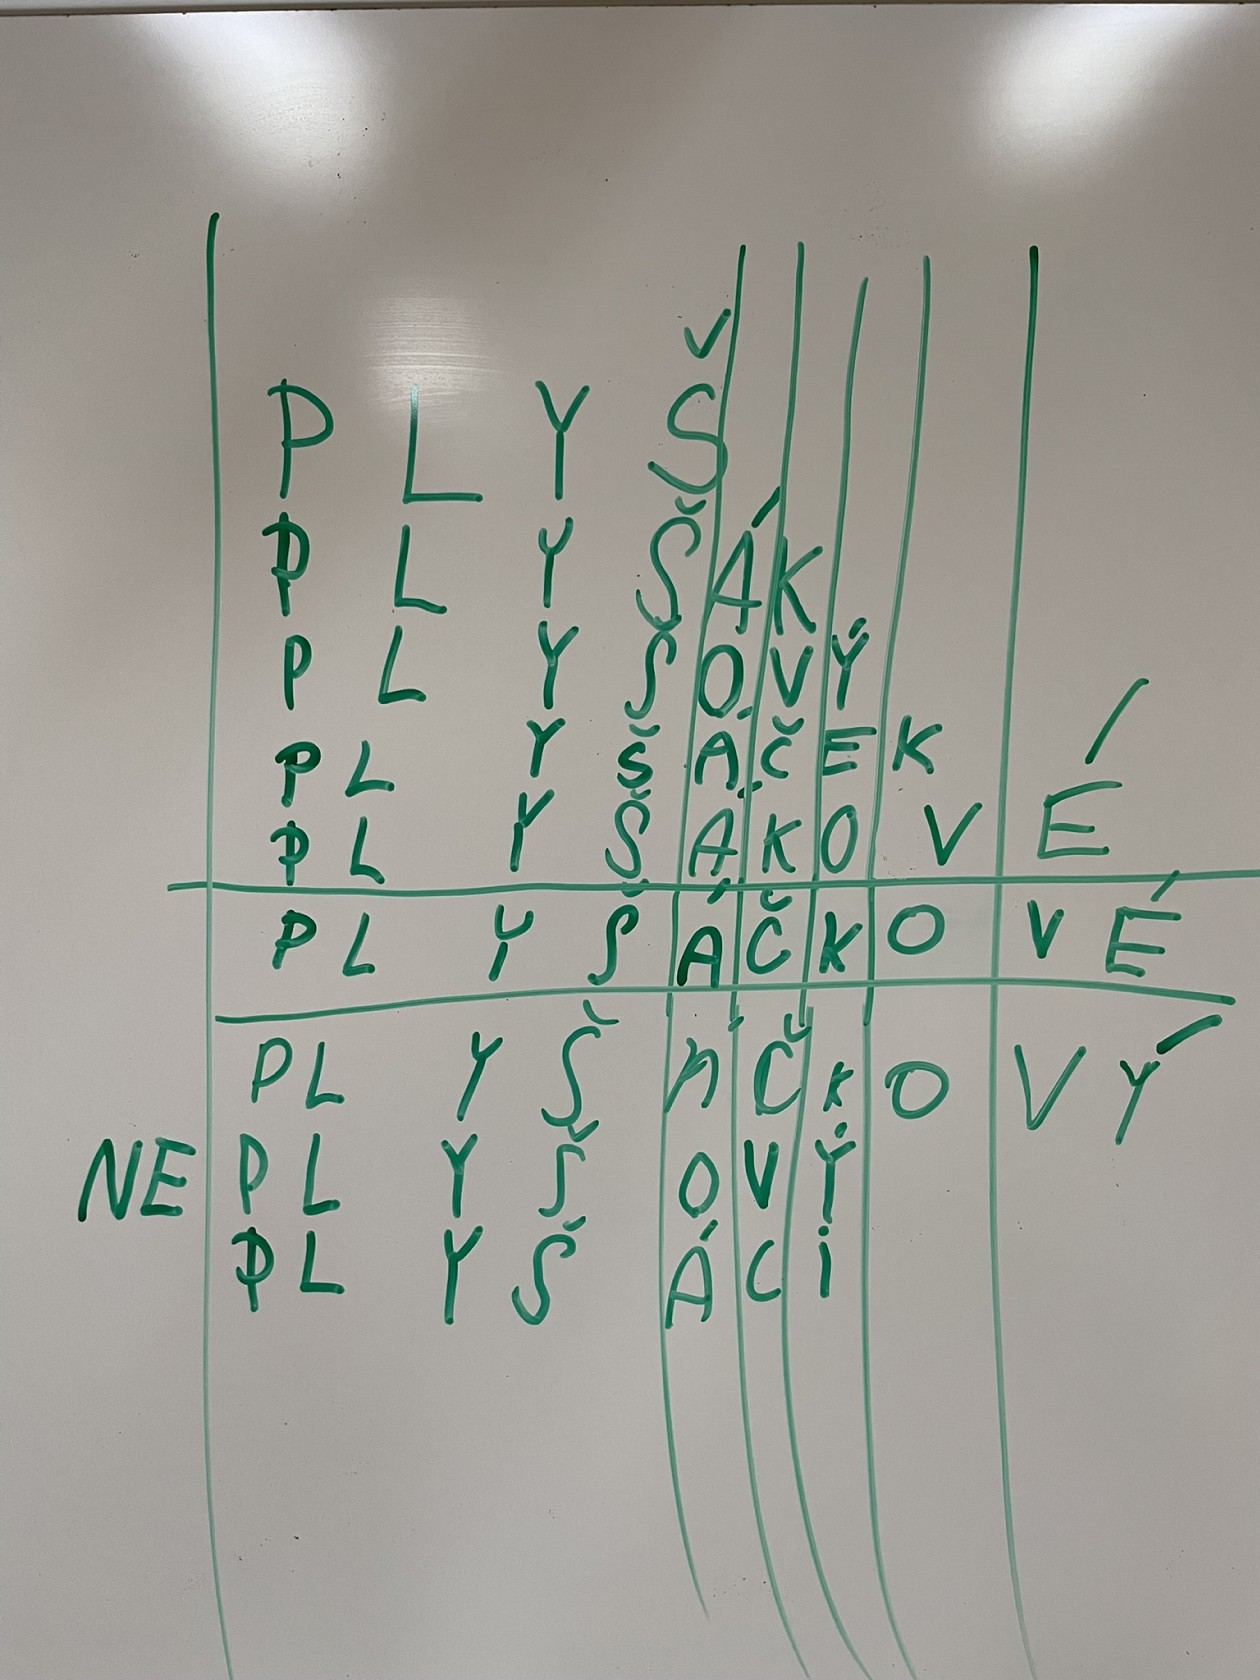 PLYŠ
PLYŠÁK
PLYŠOVÝ
PLYŠÁČEK
PLYŠÁKOVÉ
PLYŠÁČKOVÉ
PLYŠÁČKOVÝ
NEPLYŠOVÝ
PLYŠÁCI